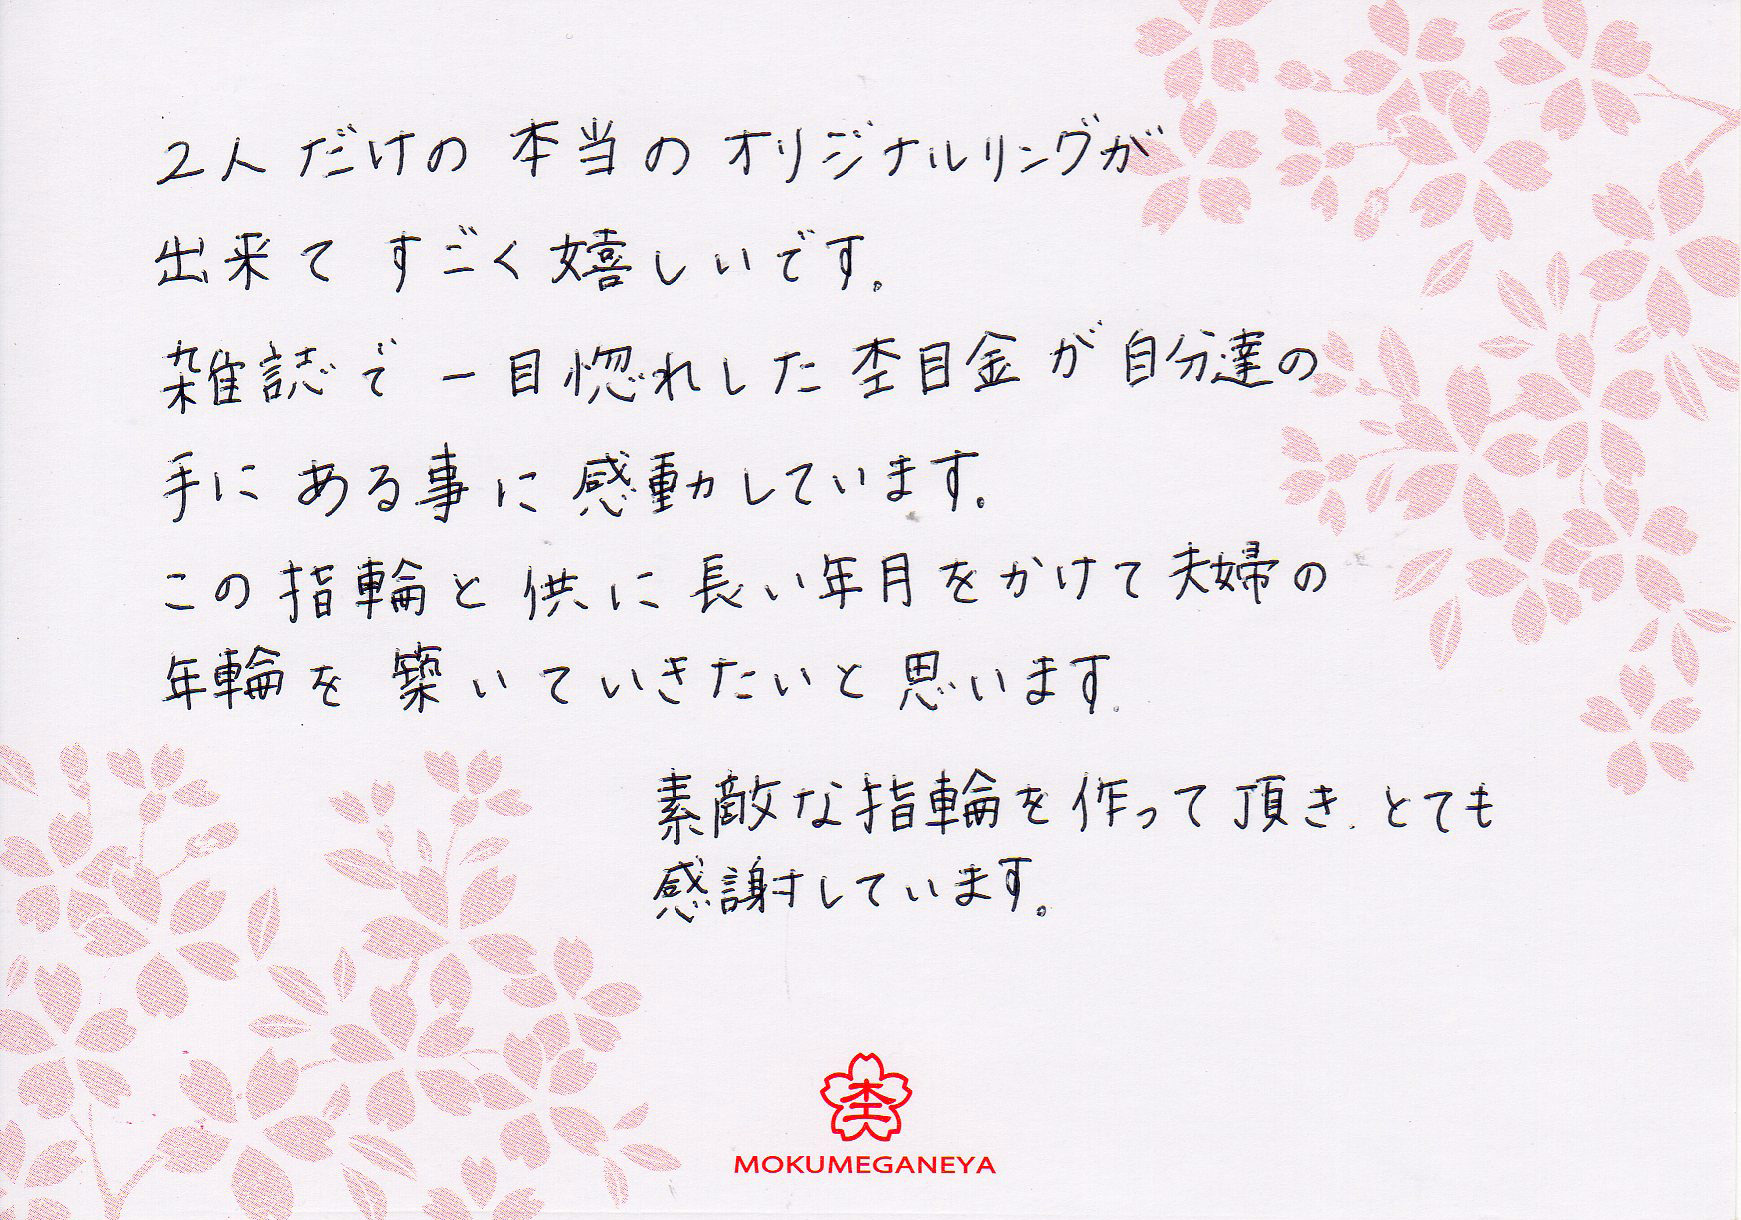 2人だけの本当のオリジナルリングが
出来てすごく嬉しいです。
雑誌で一目惚れした杢目金が自分達の
手にある事に感動しています。
この指輪と供に長い年月をかけて夫婦の
年輪を築いていきたいと思います.
素敵な指輪を作って頂き、とても
感謝しています。
杢
MOKUMEGANEYA